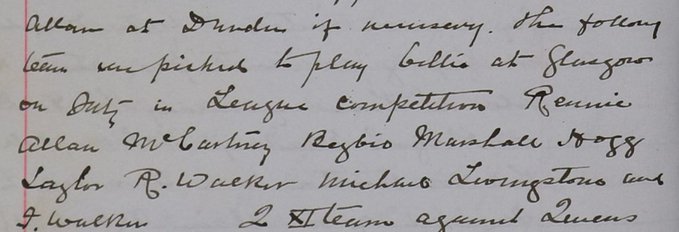 Allan at Dundee if necessary. The following
team was picked to play Celtic at Glasgow
on Saty in League competition Rennie
Allan McCartney Begbie Marshall Hogg
Taylor R. Walker Michael Livingstone and
J. Walker 2 XI team against Queens